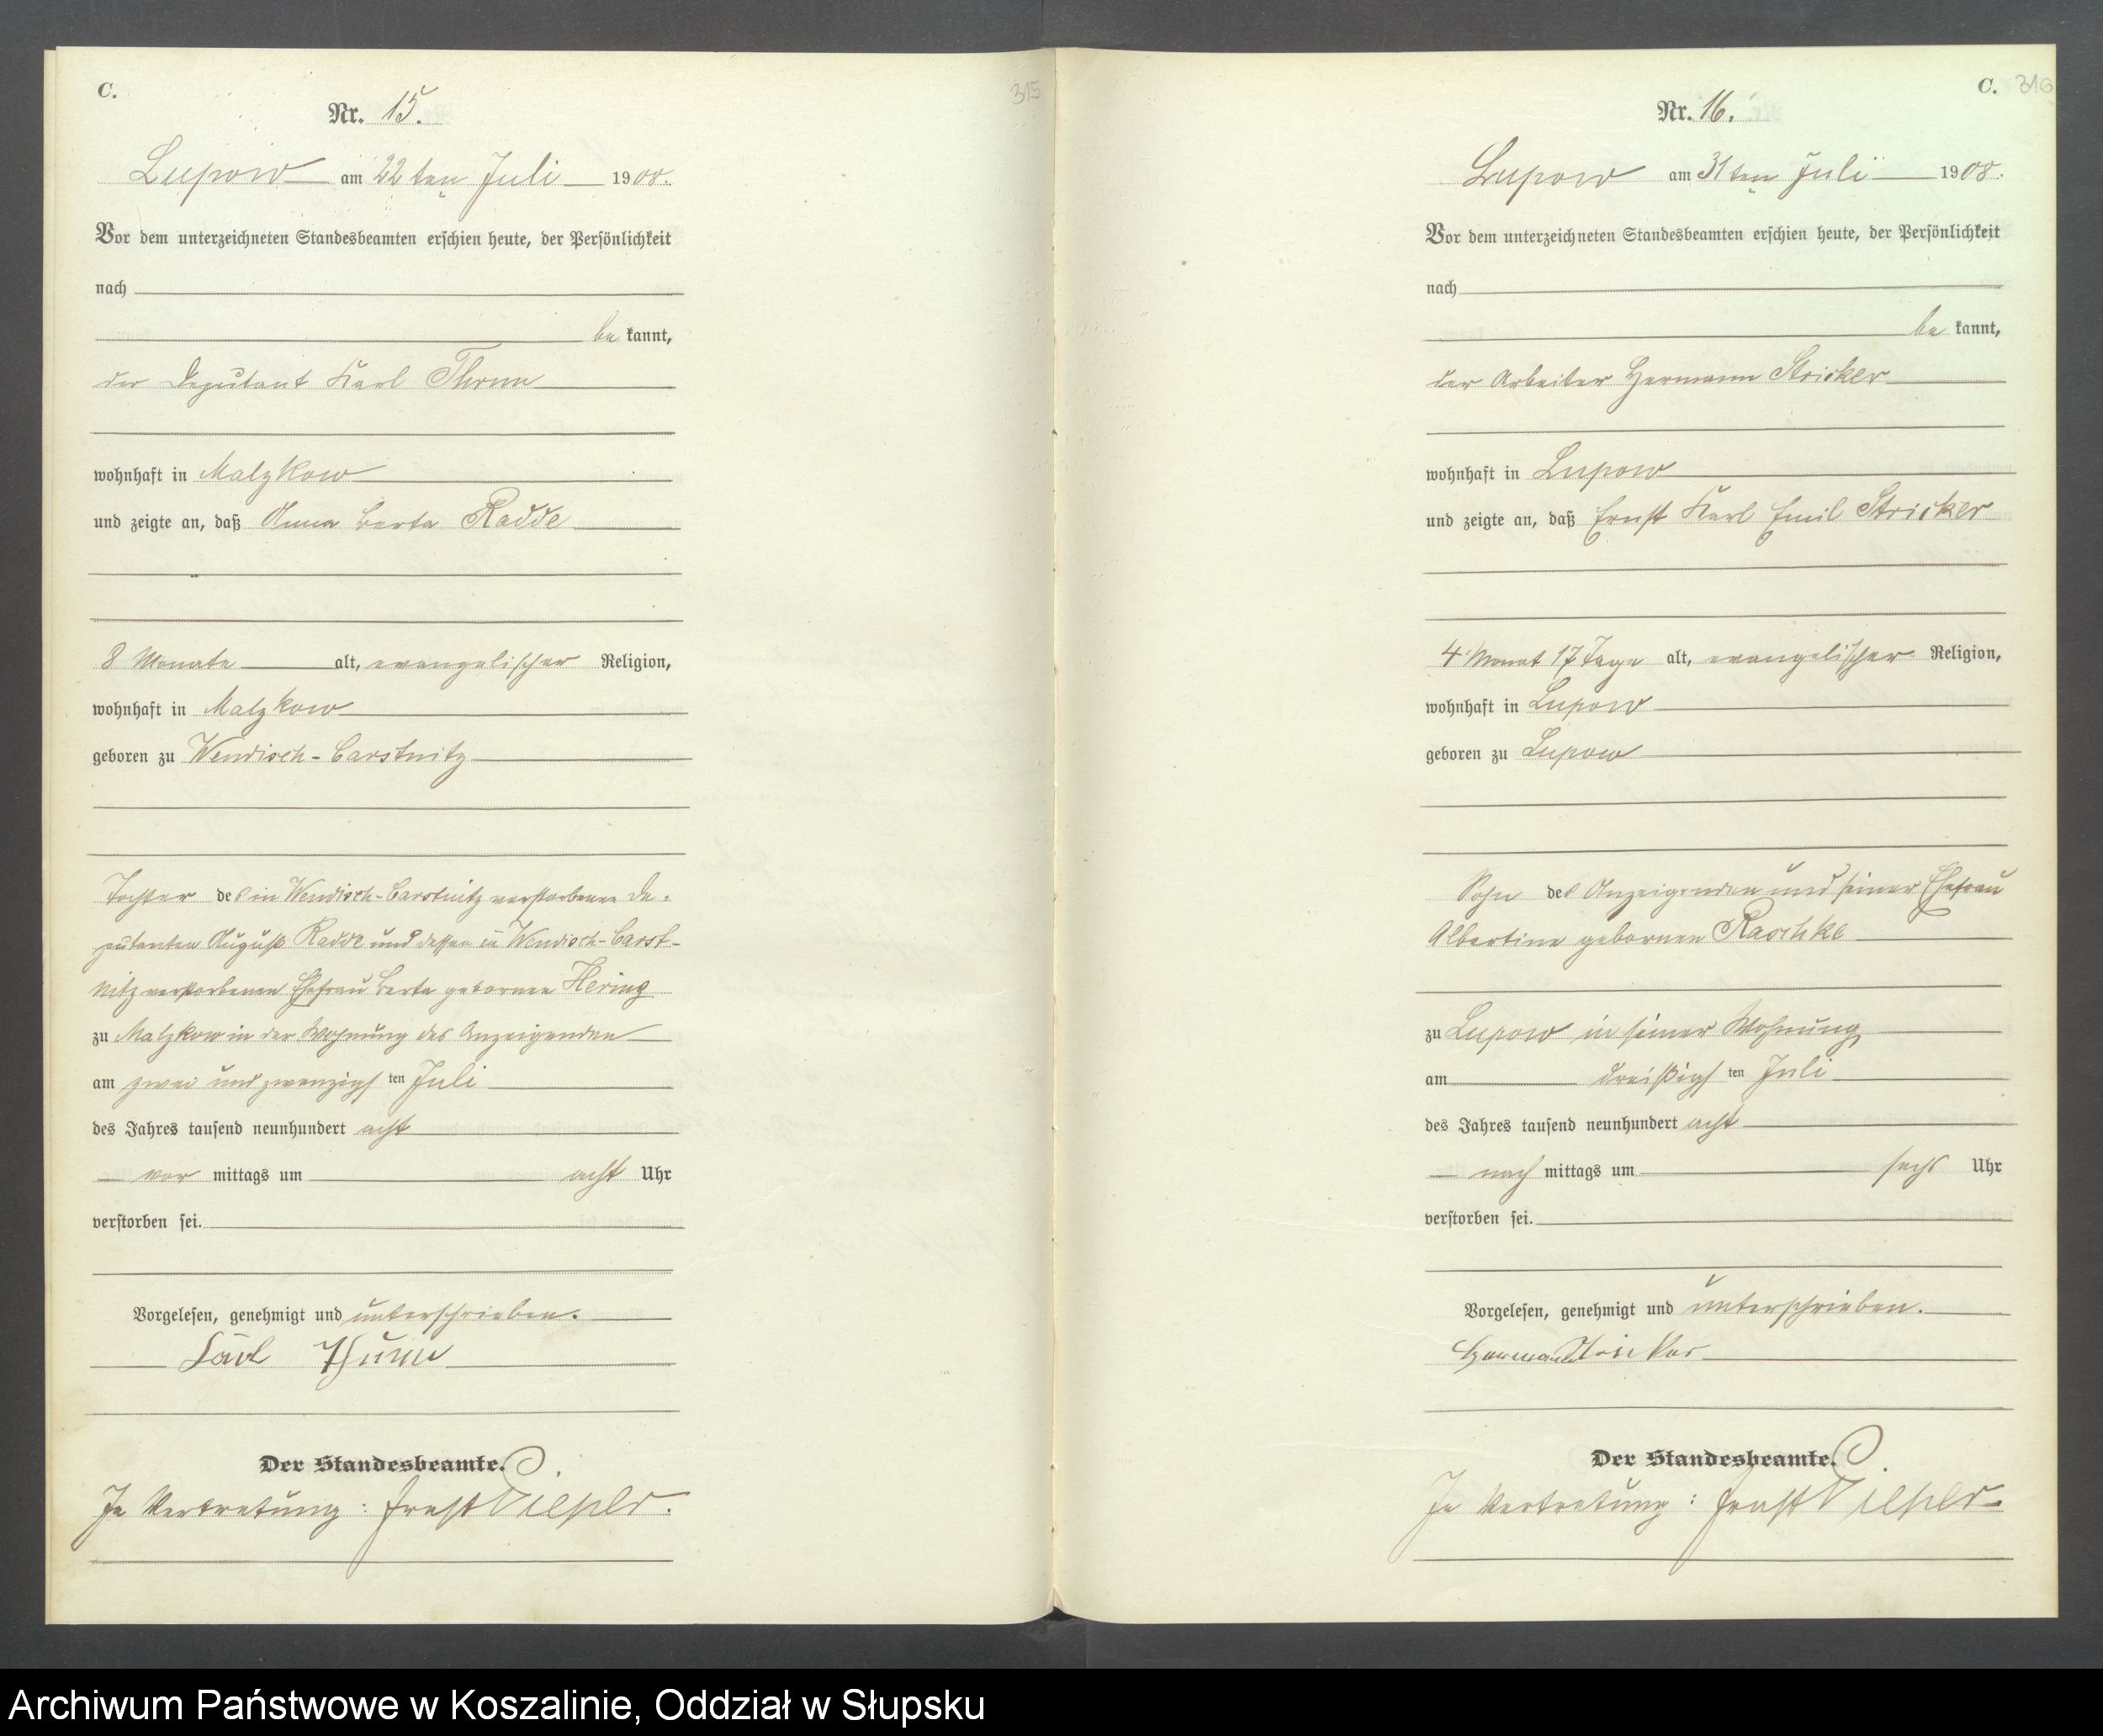 C.
315
Nr. 15.
Lupow am 22ten Juli 1908.
Vor dem unterzeichneten Standesbeamten erschien heute, der Persönlichkeit
nach
be kannt,
der Deputant Karl
wohnhaft in Malzkow
und zeigte an, daß Anna Berta Radde
8 Monate alt, evangelischer Religion,
wohnhaft in Malzkow
geboren zu Wendisch-Carstnitz
Tochter des in Wendisch-Carstnitz verstorbenen De-
putanten August Radde und dessen in Wendisch-Carst-
nitz verstorbenen Ehefrau Berta gebornen Hering
zu Malzkow in der Wohnung des Anzeigenden
am zwei und zwanzigs ten Juli
des Jahres tausend neunhundert acht
vor mittags um acht Uhr
verstorben sei.
Vorgelesen, genehmigt und unterschrieben.
Karl
Der Standesbeamte.
In Vertretung: Ernst Pieper.
C. 316
Nr. 16.
Lupow am 31ten Juli 1908.
Vor dem unterzeichneten Standesbeamten erschien heute, der Persönlichkeit
nach
be kannt,
der Arbeiter Hermann Stricker
wohnhaft in Lupow
und zeigte an, daß Ernst Karl Emil Stricker
4 Monat 17 Tage alt, evangelischer Religion,
wohnhaft in Lupow
geboren zu Lupow
Sohn des Anzeigenden und seiner Ehefrau
Albertine gebornen Raschke
zu Lupow in seiner Wohnung
am dreißigs ten Juli
des Jahres tausend neunhundert acht
nach mittags um sechs Uhr
verstorben sei.
Vorgelesen, genehmigt und unterschrieben.
Hermann Stricker
Der Standesbeamte.
In Vertretung: Ernst Pieper.
Archiwum Państwowe w Koszalinie, Oddział w Słupsku